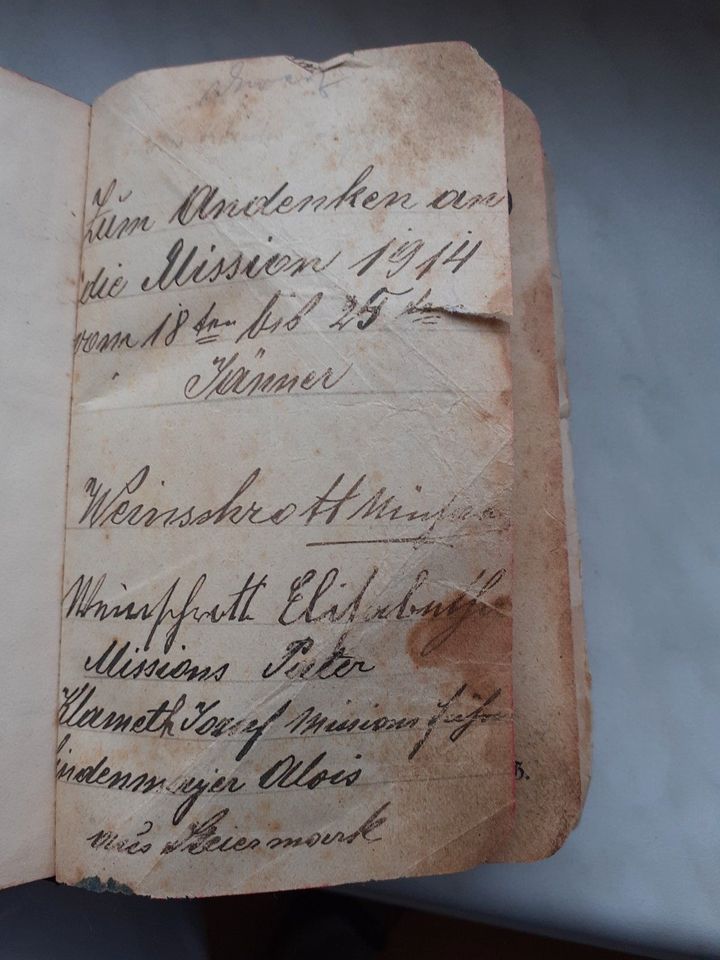 Zum Andenken an
die Mission 1914
vom 18ten bis 25ten
Jänner
Weinschrott
Weinschrott Elisabeth
Missions Pater
Klameth Josef Missions
Lindenmayer Alois
aus Steiermark